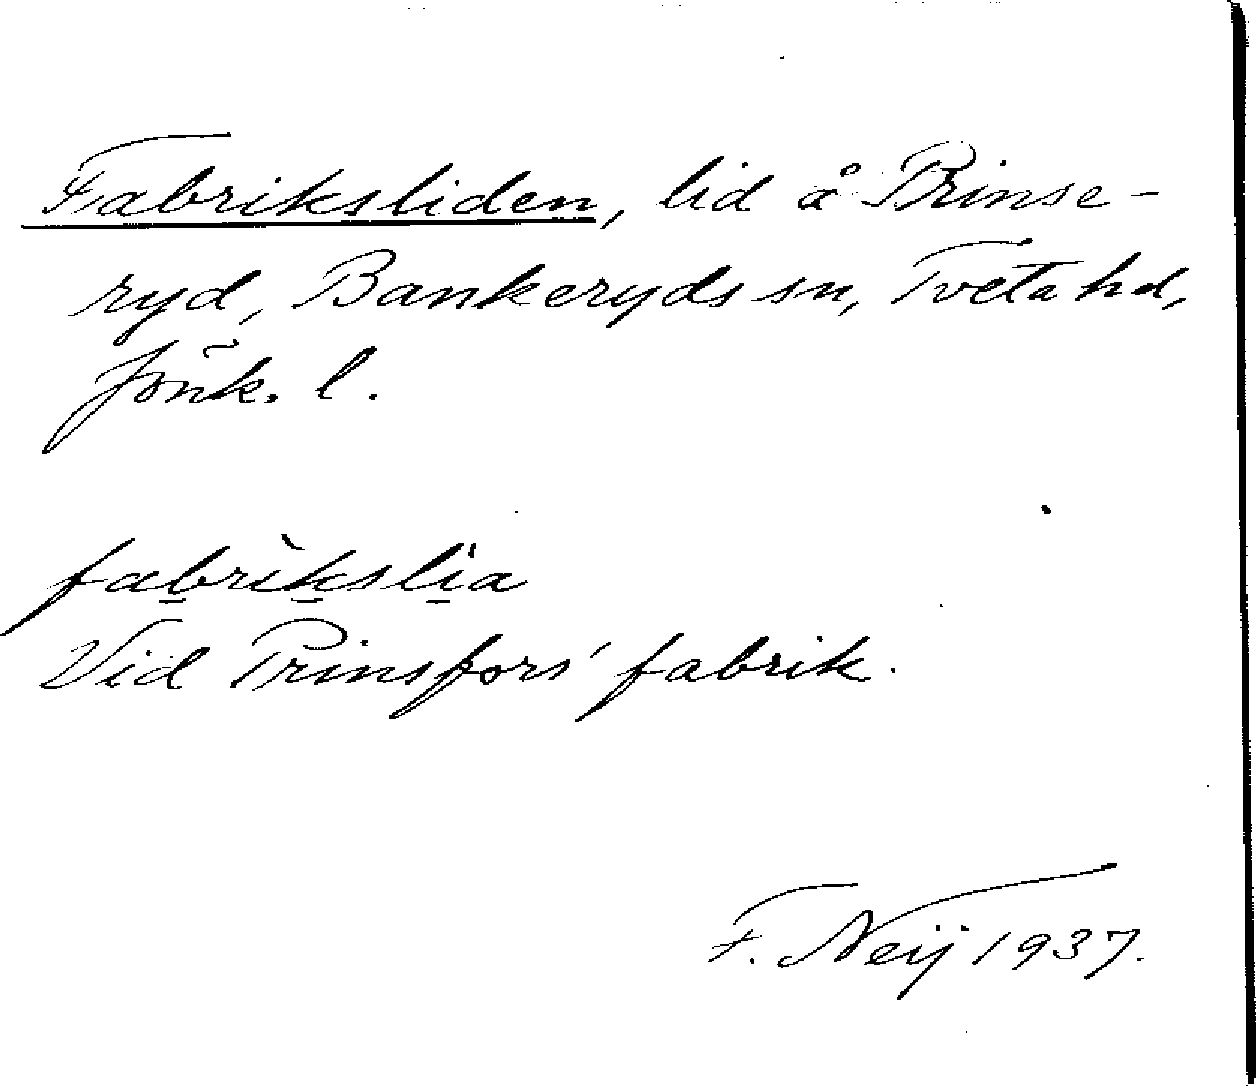 Fabriksliden, lid å Prinse-
ryd, Bankeryds sn, Tveta hd,
Jönk. l.
fabrìkslia
Vid Prinsfors' fabrik.
F. Neij 1937.